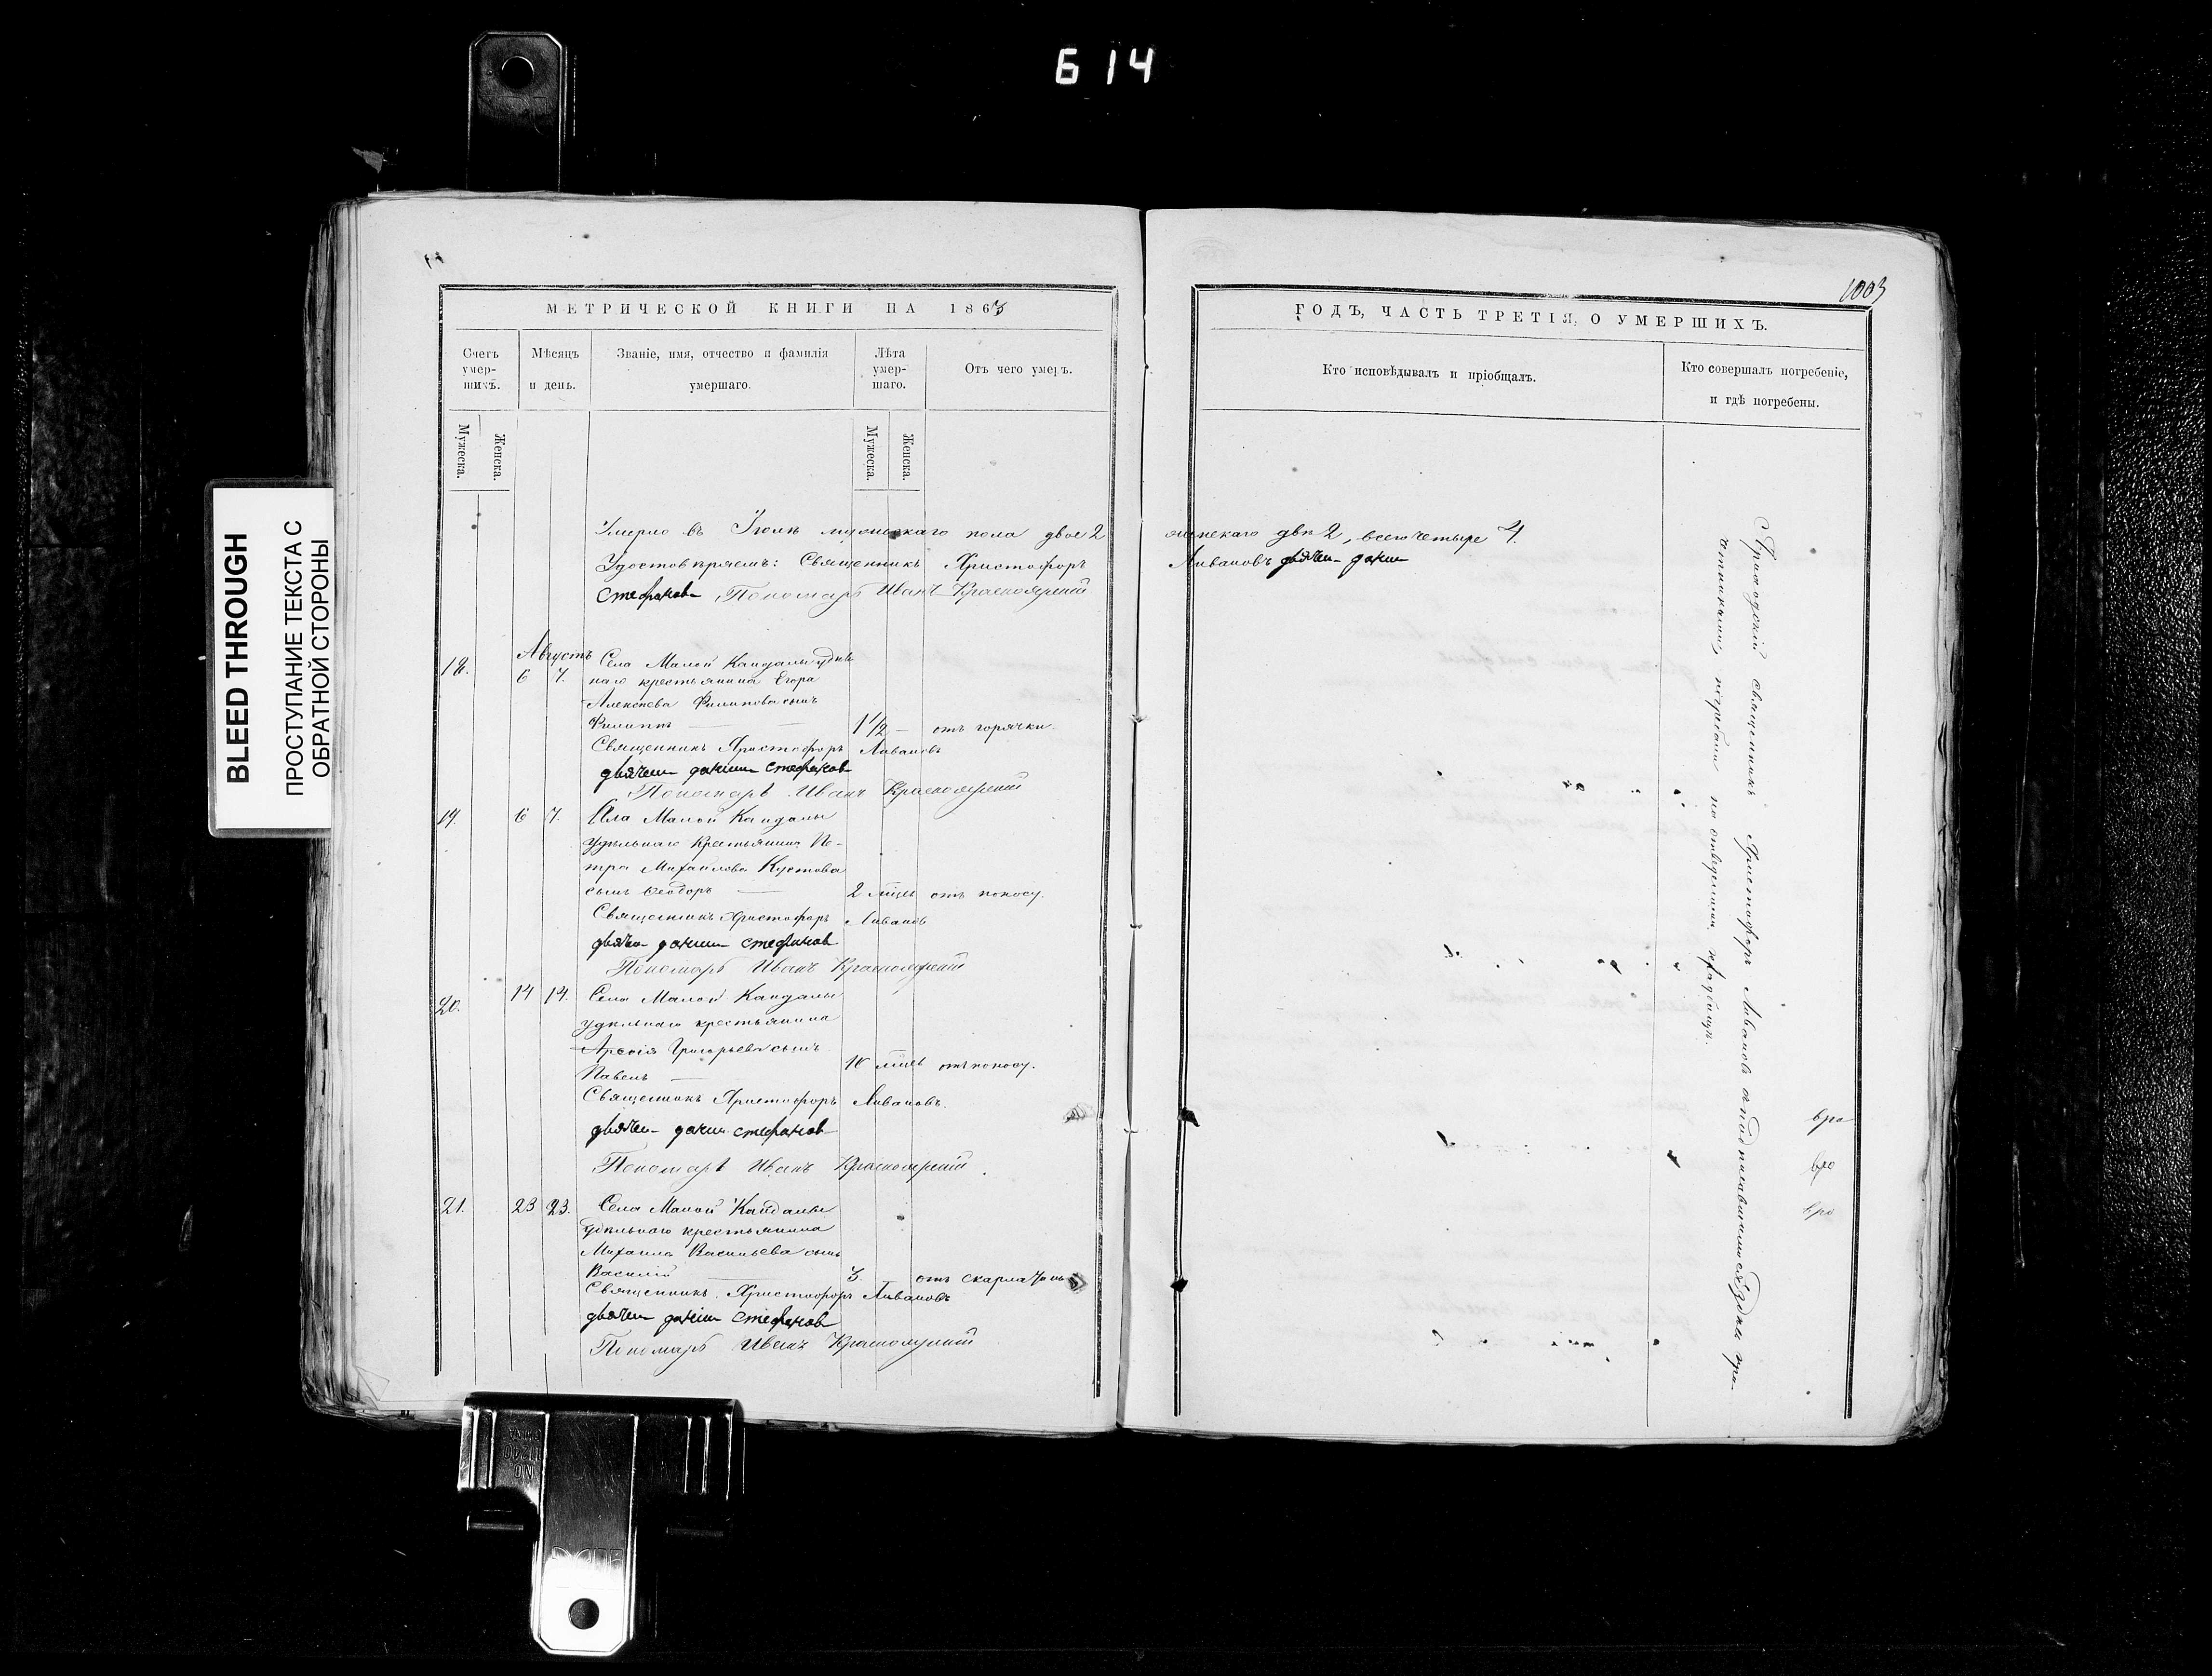 614
BLEED THROUGH
ПРОСТУПАНИЕ ТЕКСТА С
ОБРАТНОЙ СТОРОНЫ
МЕТРИЧЕСКОЙ КНИГИ НА 1863
Счетъ умер-шихъ.
Мѣсяцъ и день.
Званіе, имя, отчество и фамилія умершаго.
Лѣта умер-шаго.
Отъ чего умеръ.
Мужеска.
Женска.
Мужеска.
Женска.
Умерло въ Іюлѣ мужескаго пола двое 2
Удостовѣряемъ: Священникъ Христофоръ
Стефановъ Пономарь Иванъ Красноярскій
Августъ
18. 6 7. Села Малой Кандалы удѣль
наго крестьянина Егора
Алексѣева Филипова сынъ
Филиппъ 1 1/2 — отъ горячки.
Священникъ Христофоръ Ливановъ
дьячекъ Стефановъ
Пономарь Иванъ Красноярскій
19. 6 7. Села Малой Кандалы
удѣльнаго крестьянина Пе-
тра Михайлова Кустова
сынъ Ѳеодоръ 2 мѣсц отъ поносу.
Священникъ Христофоръ Ливановъ
дьячекъ Стефановъ
Пономарь Иванъ Красноярскій
20. 14 14. Села Малой Кандалы
удѣльнаго крестьянина
Арсѣнія Григорьева сынъ
Павелъ 10 мѣсц отъ поносу.
Священникъ Христофоръ Ливановъ.
дьячекъ Стефановъ
Пономарь Иванъ Красноярскій
21. 23 23. Села Малой Кандалы
удѣльнаго крестьянина
Михаила Васильева сынъ
Василій 3. отъ скарлатины
Священникъ Христофоръ Ливановъ
дьячекъ Стефановъ
Пономарь Иванъ Красноярскій
1003
ГОДЪ, ЧАСТЬ ТРЕТІЯ, О УМЕРШИХЪ.
Кто исповѣдывалъ и пріобщалъ.
Кто совершалъ погребеніе,
и гдѣ погребены.
женскаго двѣ 2, всего четыре 4.
Ливановъ дьячекъ
Приходскій священникъ Христофоръ Ливановъ съ подписавшимися здѣсь при-
четниками, погребены на отведенномъ кладбищѣ.